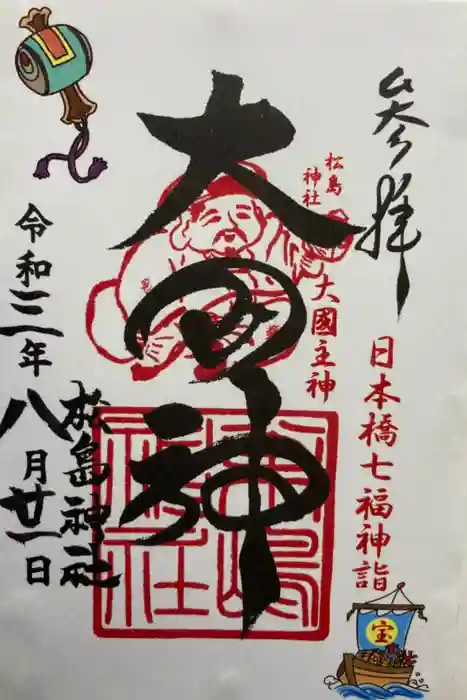 参拝
日本橋七福神詣
松島
神社
大國主神
大国神
松島神社
令和三年八月廿一日
松島神社
宝